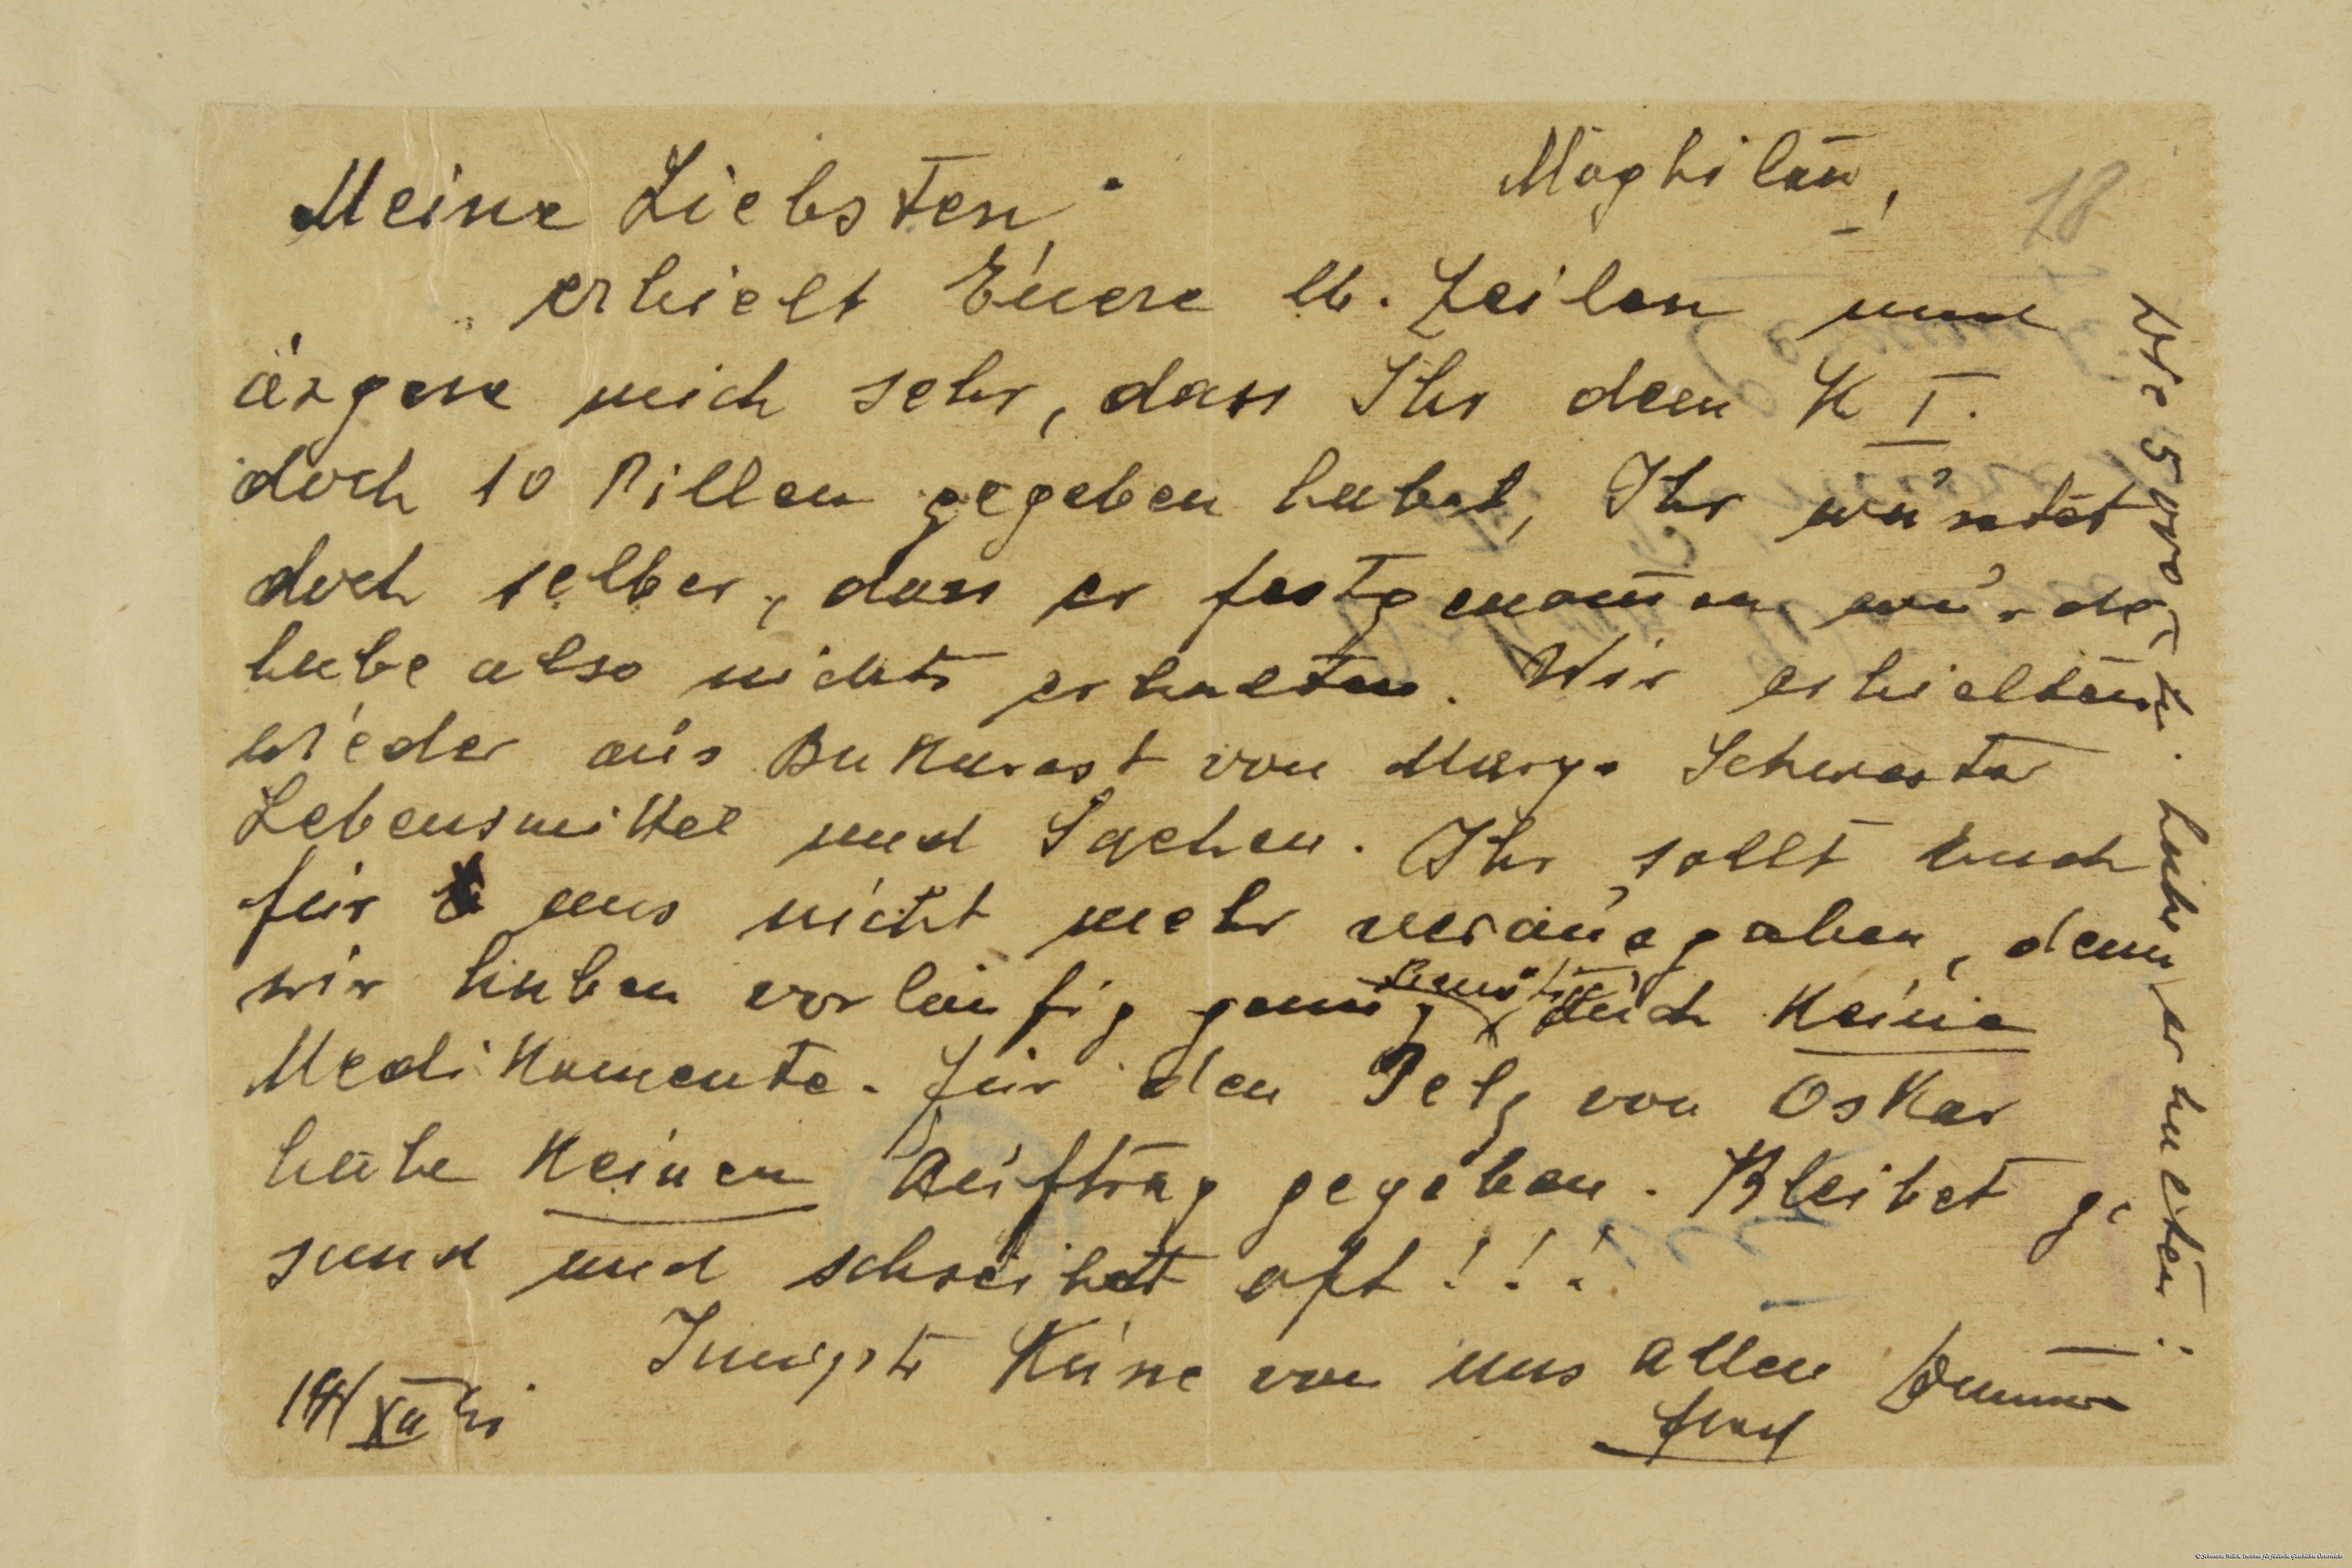 Moghilau,
18
Meine Liebsten
erhielt Euere lb. Zeilen und
ärgere mich sehr, dass Ihr dem K I.
doch 10 Pillen gegeben habet, Ihr wusstet
doch selber, dass er festgenom̅en wurde
habe also nichts erhalten. Wir erhielten
wieder aus Bukarest von Schwester
Lebensmittel und Sachen. Ihr sollt Euch
für uns nicht mehr verausgaben, denn
wir haben vorläufig genug Euch keine
Medikamente. Für den Pelz von Oskar
habe keinen Auftrag gegeben. Bleibet ge
sund und schreibet oft!!!
Innigste Küsse von uns allen
XII
Die 5 habe erhalten.